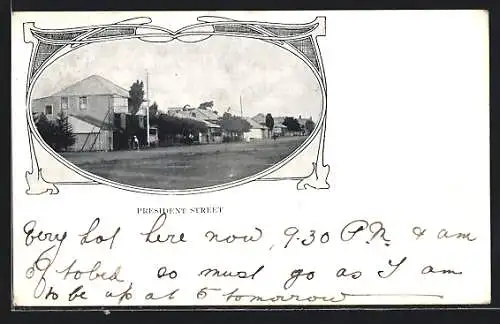 PRESIDENT STREET
Very hot here now, 9.30 P.M. & am
off to bed so must go as I am
to be up at 5 tomorrow